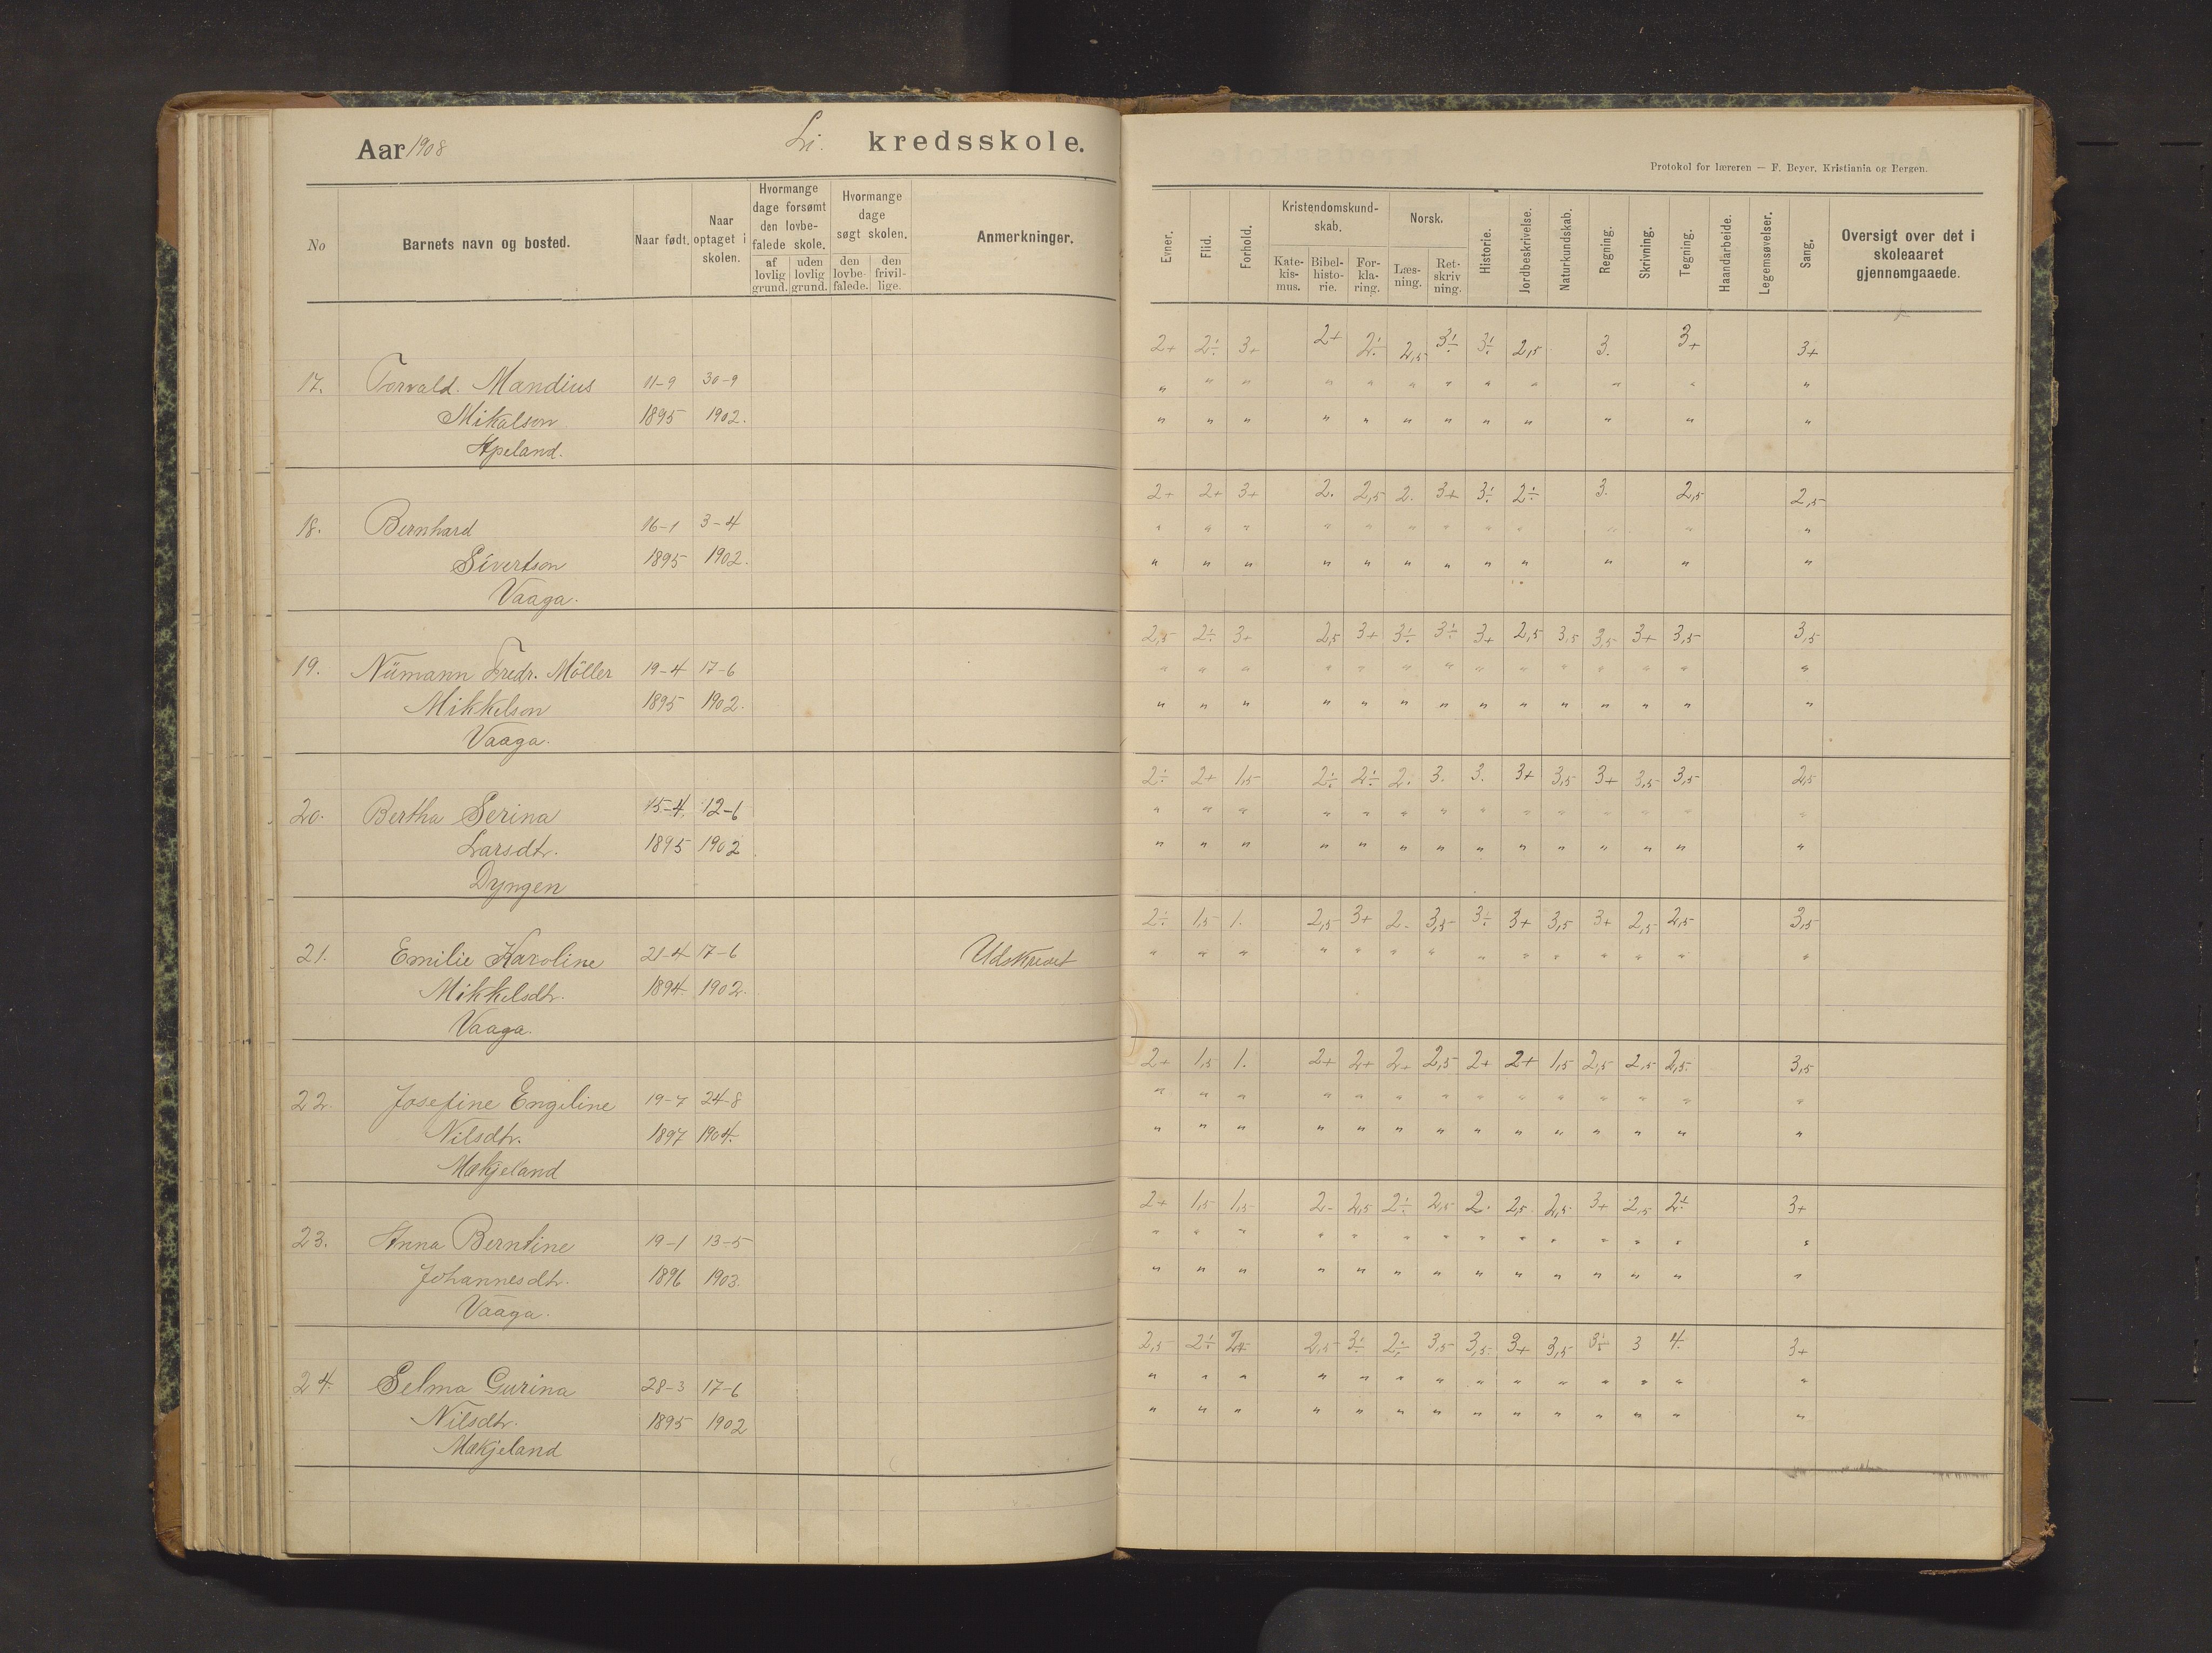 Aar 1908 Li. kredsskole.
Protokol for læreren — F. Beyer, Kristiania og Bergen.
No
Barnets navn og bosted.
Naar født.
Naar optaget i skolen.
Hvormange dage forsømt den lovbefalede skole.
af lovlig grund.
uden lovlig grund.
Hvormange dage søgt skolen.
den lovbefalede.
den frivillige.
Anmerkninger.
Evner.
Flid.
Forhold.
Kristendomskundskab.
Katekismus.
Bibelhistorie.
Forklaring.
Norsk.
Læsning.
Retskrivning.
Historie.
Jordbeskrivelse.
Naturkundskab.
Regning.
Skrivning.
Tegning.
Haandarbeide.
Legemsøvelser.
Sang.
Oversigt over det i skoleaaret gjennemgaaede.
2+ 2÷ 3+ 2+ 2÷ 2,5 3÷ 3÷ 2,5 3. 3+ 3+
17. Torvald. Mandius 11-9 30-9 " " " " " " " " " " " "
Mikalson 1895 1902. " " " " " " " " " " " "
Apeland.
2+ 2+ 3+ 2. 2,5 2. 3+ 3÷ 2÷ 3. 2,5 2,5
18. Bernhard 16-1 3-4 " " " " " " " " " " " "
Sivertson 1895 1902. " " " " " " " " " " " "
Vaaga.
2,5 2÷ 3+ 2,5 3+ 3÷ 3÷ 3+ 2,5 3,5 3,5 3+ 3,5 3,5
19. Nümann Fredr. Möller 19-4 17-6 " " " " " " " " " " " " " "
Mikkelson 1895 1902. " " " " " " " " " " " " " "
Vaaga.
2÷ 2+ 1,5 2÷ 2÷ 2. 3. 3. 3+ 3,5 3+ 3,5 3,5 2,5
20. Bertha Serina 15-4. 12-6 " " " " " " " " " " " " " "
Larsdtr. 1895 1902. " " " " " " " " " " " " " "
Dyngen
2÷ 1,5 1. 2,5 3+ 2. 3,5 3÷ 3+ 3,5 3+ 2,5 2,5 3,5
21. Emilie Karoline 21-4 17-6 Udskrevet " " " " " " " " " " " " " "
Mikkelsdtr. 1894. 1902.
Vaaga.
2+ 1,5 1. 2+ 2+ 2+ 2,5 2+ 2+ 1,5 2,5 2,5 2,5 3,5
22. Josefine Engeline 19-7 24-8 " " " " " " " " " " " " " "
Nilsdtr. 1897 1904. " " " " " " " " " " " " " "
Mækjeland
2+ 1,5 1,5 2. 2,5 2÷ 2,5 2. 2,5 2,5 3+ 2,5 2÷ 3+
23. Anna Berntine 19-1 13-5 " " " " " " " " " " " " " "
Johannesdtr. 1896 1903. " " " " " " " " " " " " " "
Vaaga.
2,5 2÷ 2,5 3÷ 2÷ 3,5 3,5 3+ 3,5 3÷ 3 4. 3+
24. Selma Gurina 28-3 17-6 " " " " " " " " " " " " " "
Nilsdtr. 1895 1902 " " " " " " " " " " " " " "
Mækjeland